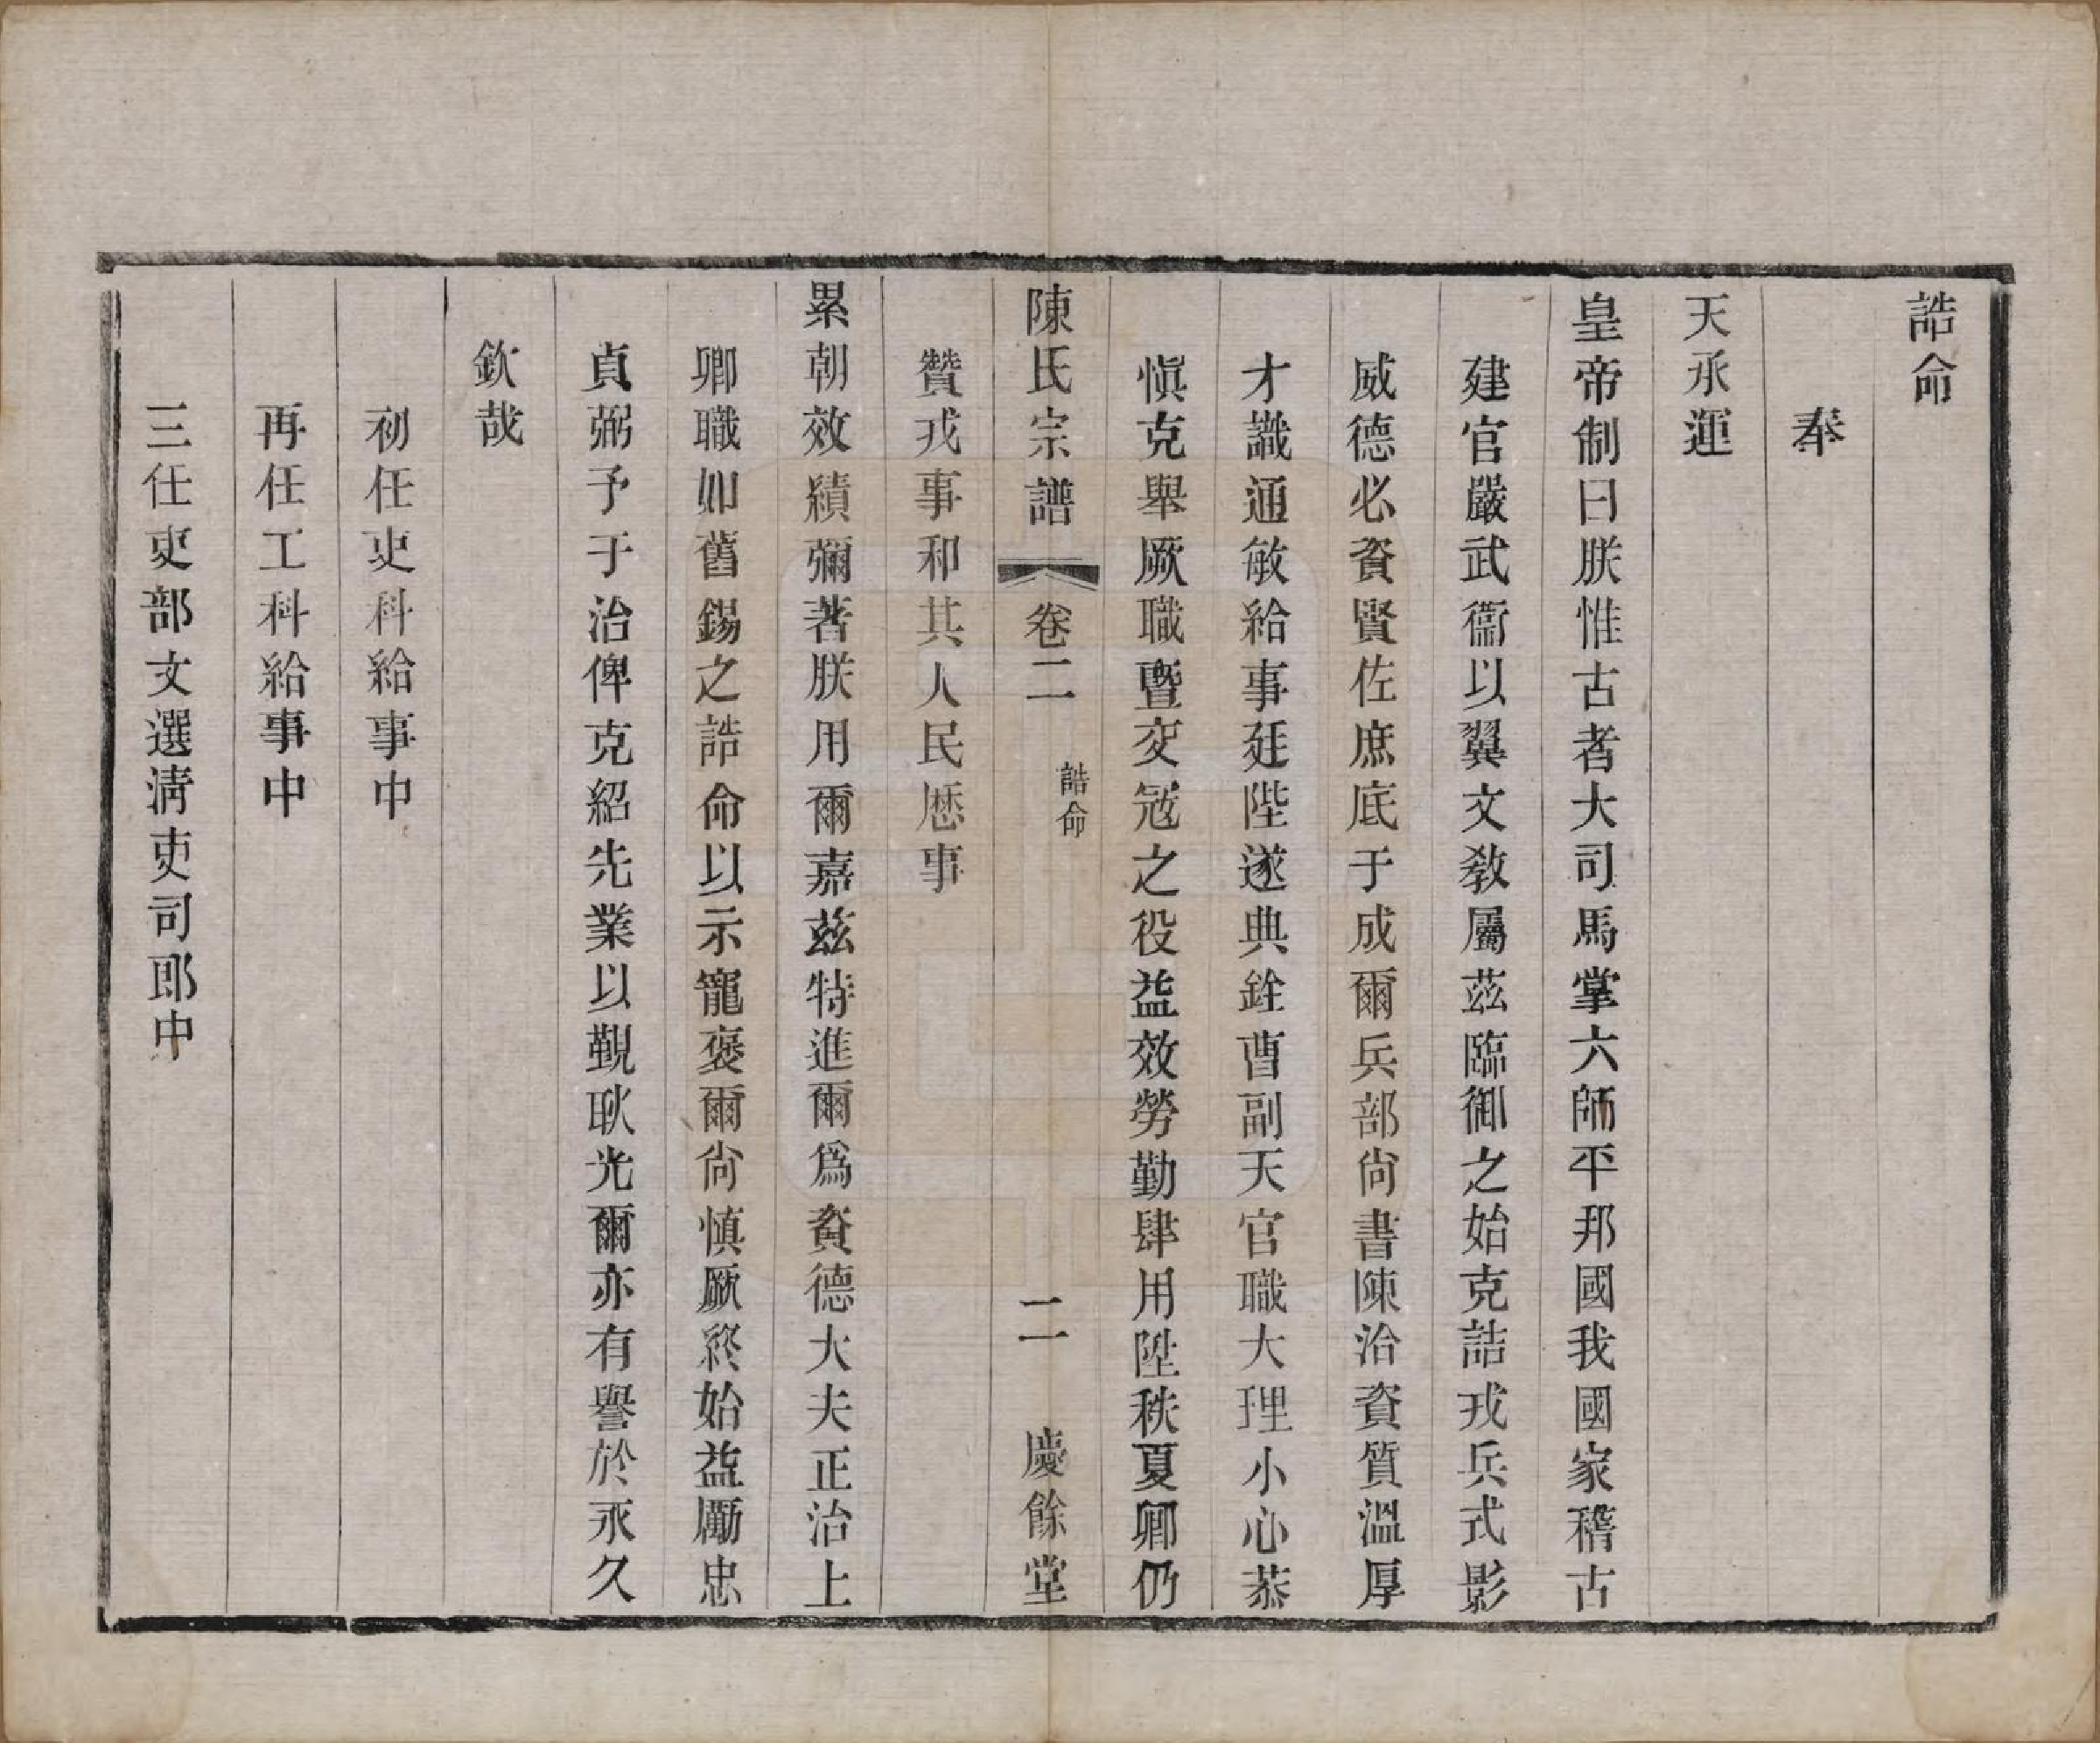 誥命
奉
天承運
皇帝制曰朕惟古者大司馬掌六師平邦國我國家稽古
建官嚴武衞以翼文敎屬茲臨御之始克詰戎兵式影
威德必資賢佐庶底于成爾兵部尙書陳洽資質溫厚
才識通敏給事廷陛遂典銓曹副天官職大理小心恭
愼克舉厥職曁交冦之役益效勞勤肆用陞秩夏卿仍
陳氏宗譜 卷二 誥命 二 慶餘堂
贊戎事和其人民厯事
累朝效績彌著朕用爾嘉茲特進爾爲資德大夫正治上
卿職如舊錫之誥命以示寵褒爾尙慎厥終始益勵忠
貞弼予于治俾克紹先業以覲耿光爾亦有譽於永久
欽哉
初任吏科給事中
再任工科給事中
三仕吏部文選淸吏司郎中